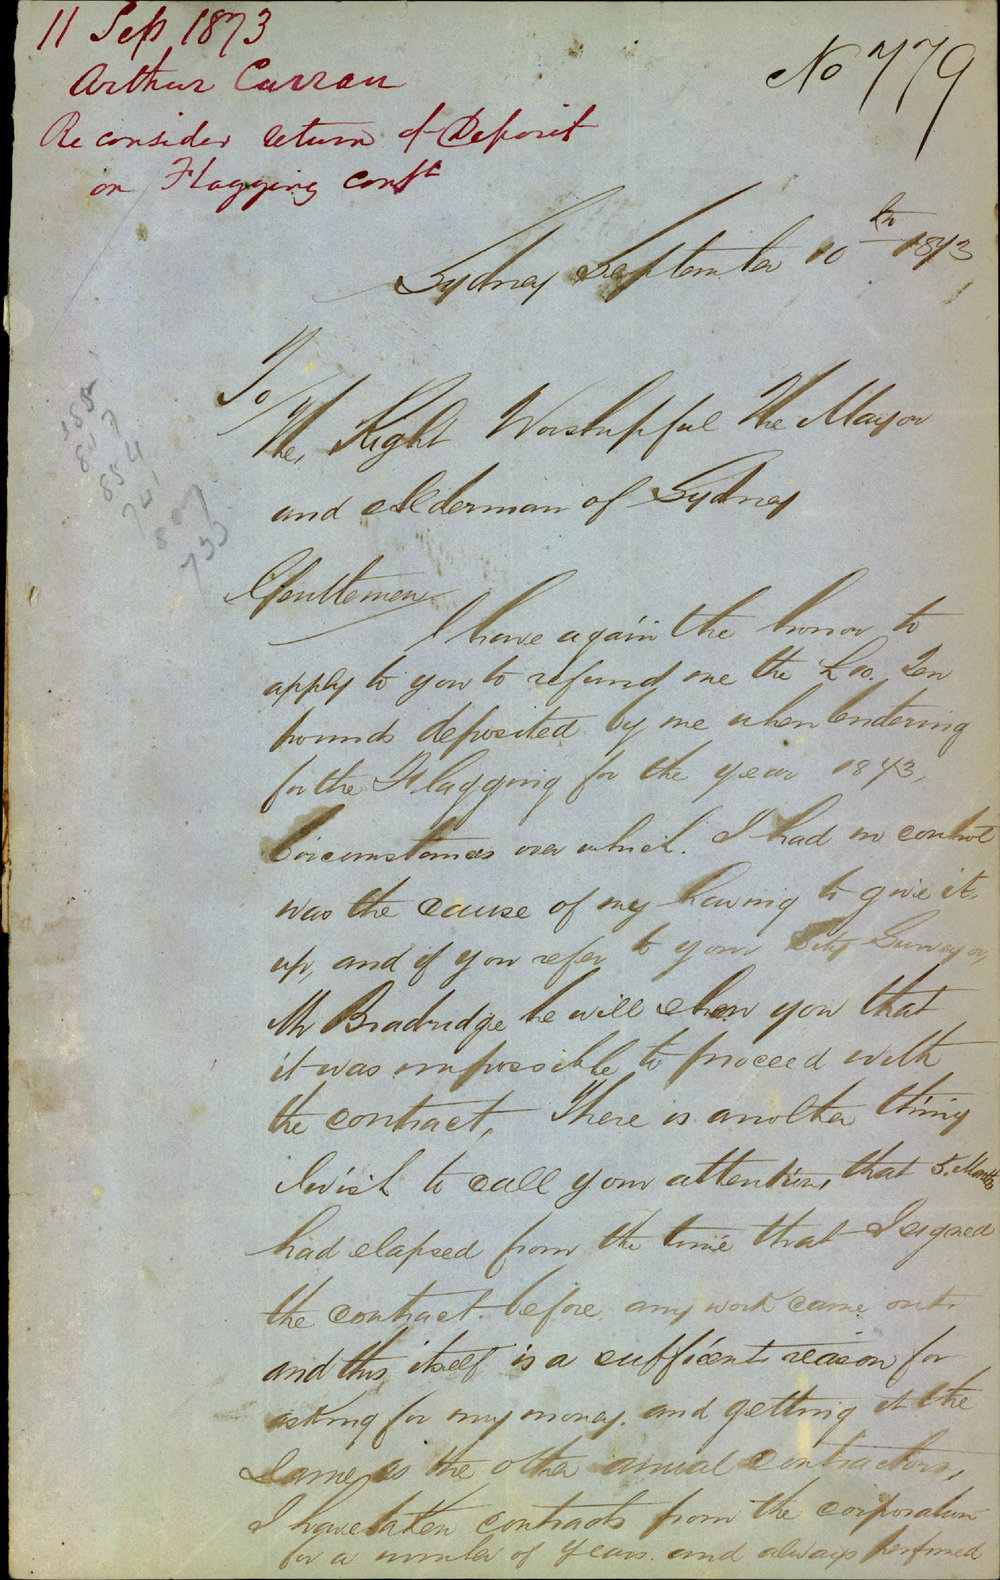 11 Sep 1873
No 779
Arthur Curran
Reconsider return of Deposit
on Flagging cont
Sydney September 10th 1873
To
The, Right Worshipful The Mayor
and Alderman of Sydney
885
847
854
741
807
733
Gentlemen
I have again the honor to
apply to you to refund me the £10. Ten
pounds deposited by me when tendering
for the Flagging for the year 1873,
Circumstances over which. I had no control
was the cause of my having to give it
up, and if you refer to your City Surveyor,
Mr Bradridge he will shew you that
it was impossible to proceed with
the contract, There is another thing
I wish to call your attention, that 5. Months
had elapsed from the time that I signed
the contract. before any work came out.
and this itself is a sufficent reason for
asking for my money. and getting it the
same as the other annual contractors,
I have taken contracts from the corporation
for a number of years. and always performed